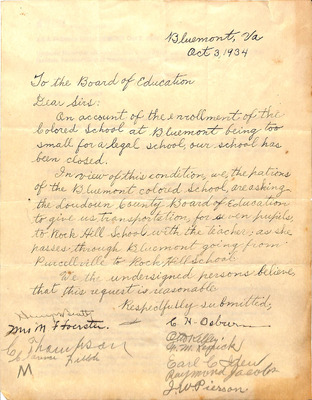 Bluemont, Va
Oct 3, 1934
To the Board of Education
Dear Sirs:
On account of the enrollment of the
Colored School at Bluemont being too
small for a legal school, our school has
been closed.
In view of this condition, we, the patrons
of the Bluemont colored School, are asking
the Loudoun County Board of Education
to give us transportation, for seven pupils,
to Rock Hill School, with the teacher, as she
passes through Bluemont going from
Purcellville to Rock Hill school.
We the undersigned persons believe
that this request is reasonable
Respectfully submitted,
Mrs M
C H Osburn
Thompson
Earl C
Raymond Jacobs
J W Pierson
M